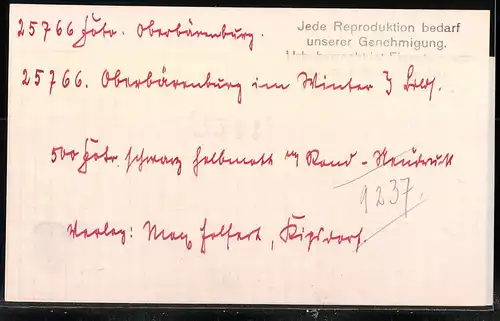 25766 Fotr. Oberbärenburg.
Jede Reproduktion bedarf
unserer Genehmigung.
25766. Oberbärenburg im Winter 3 Bild.
500 Fotr. schwarz halbmatt m Rand - Neudruck
9237.
Verlag: Max Helfert, Kipsdorf.